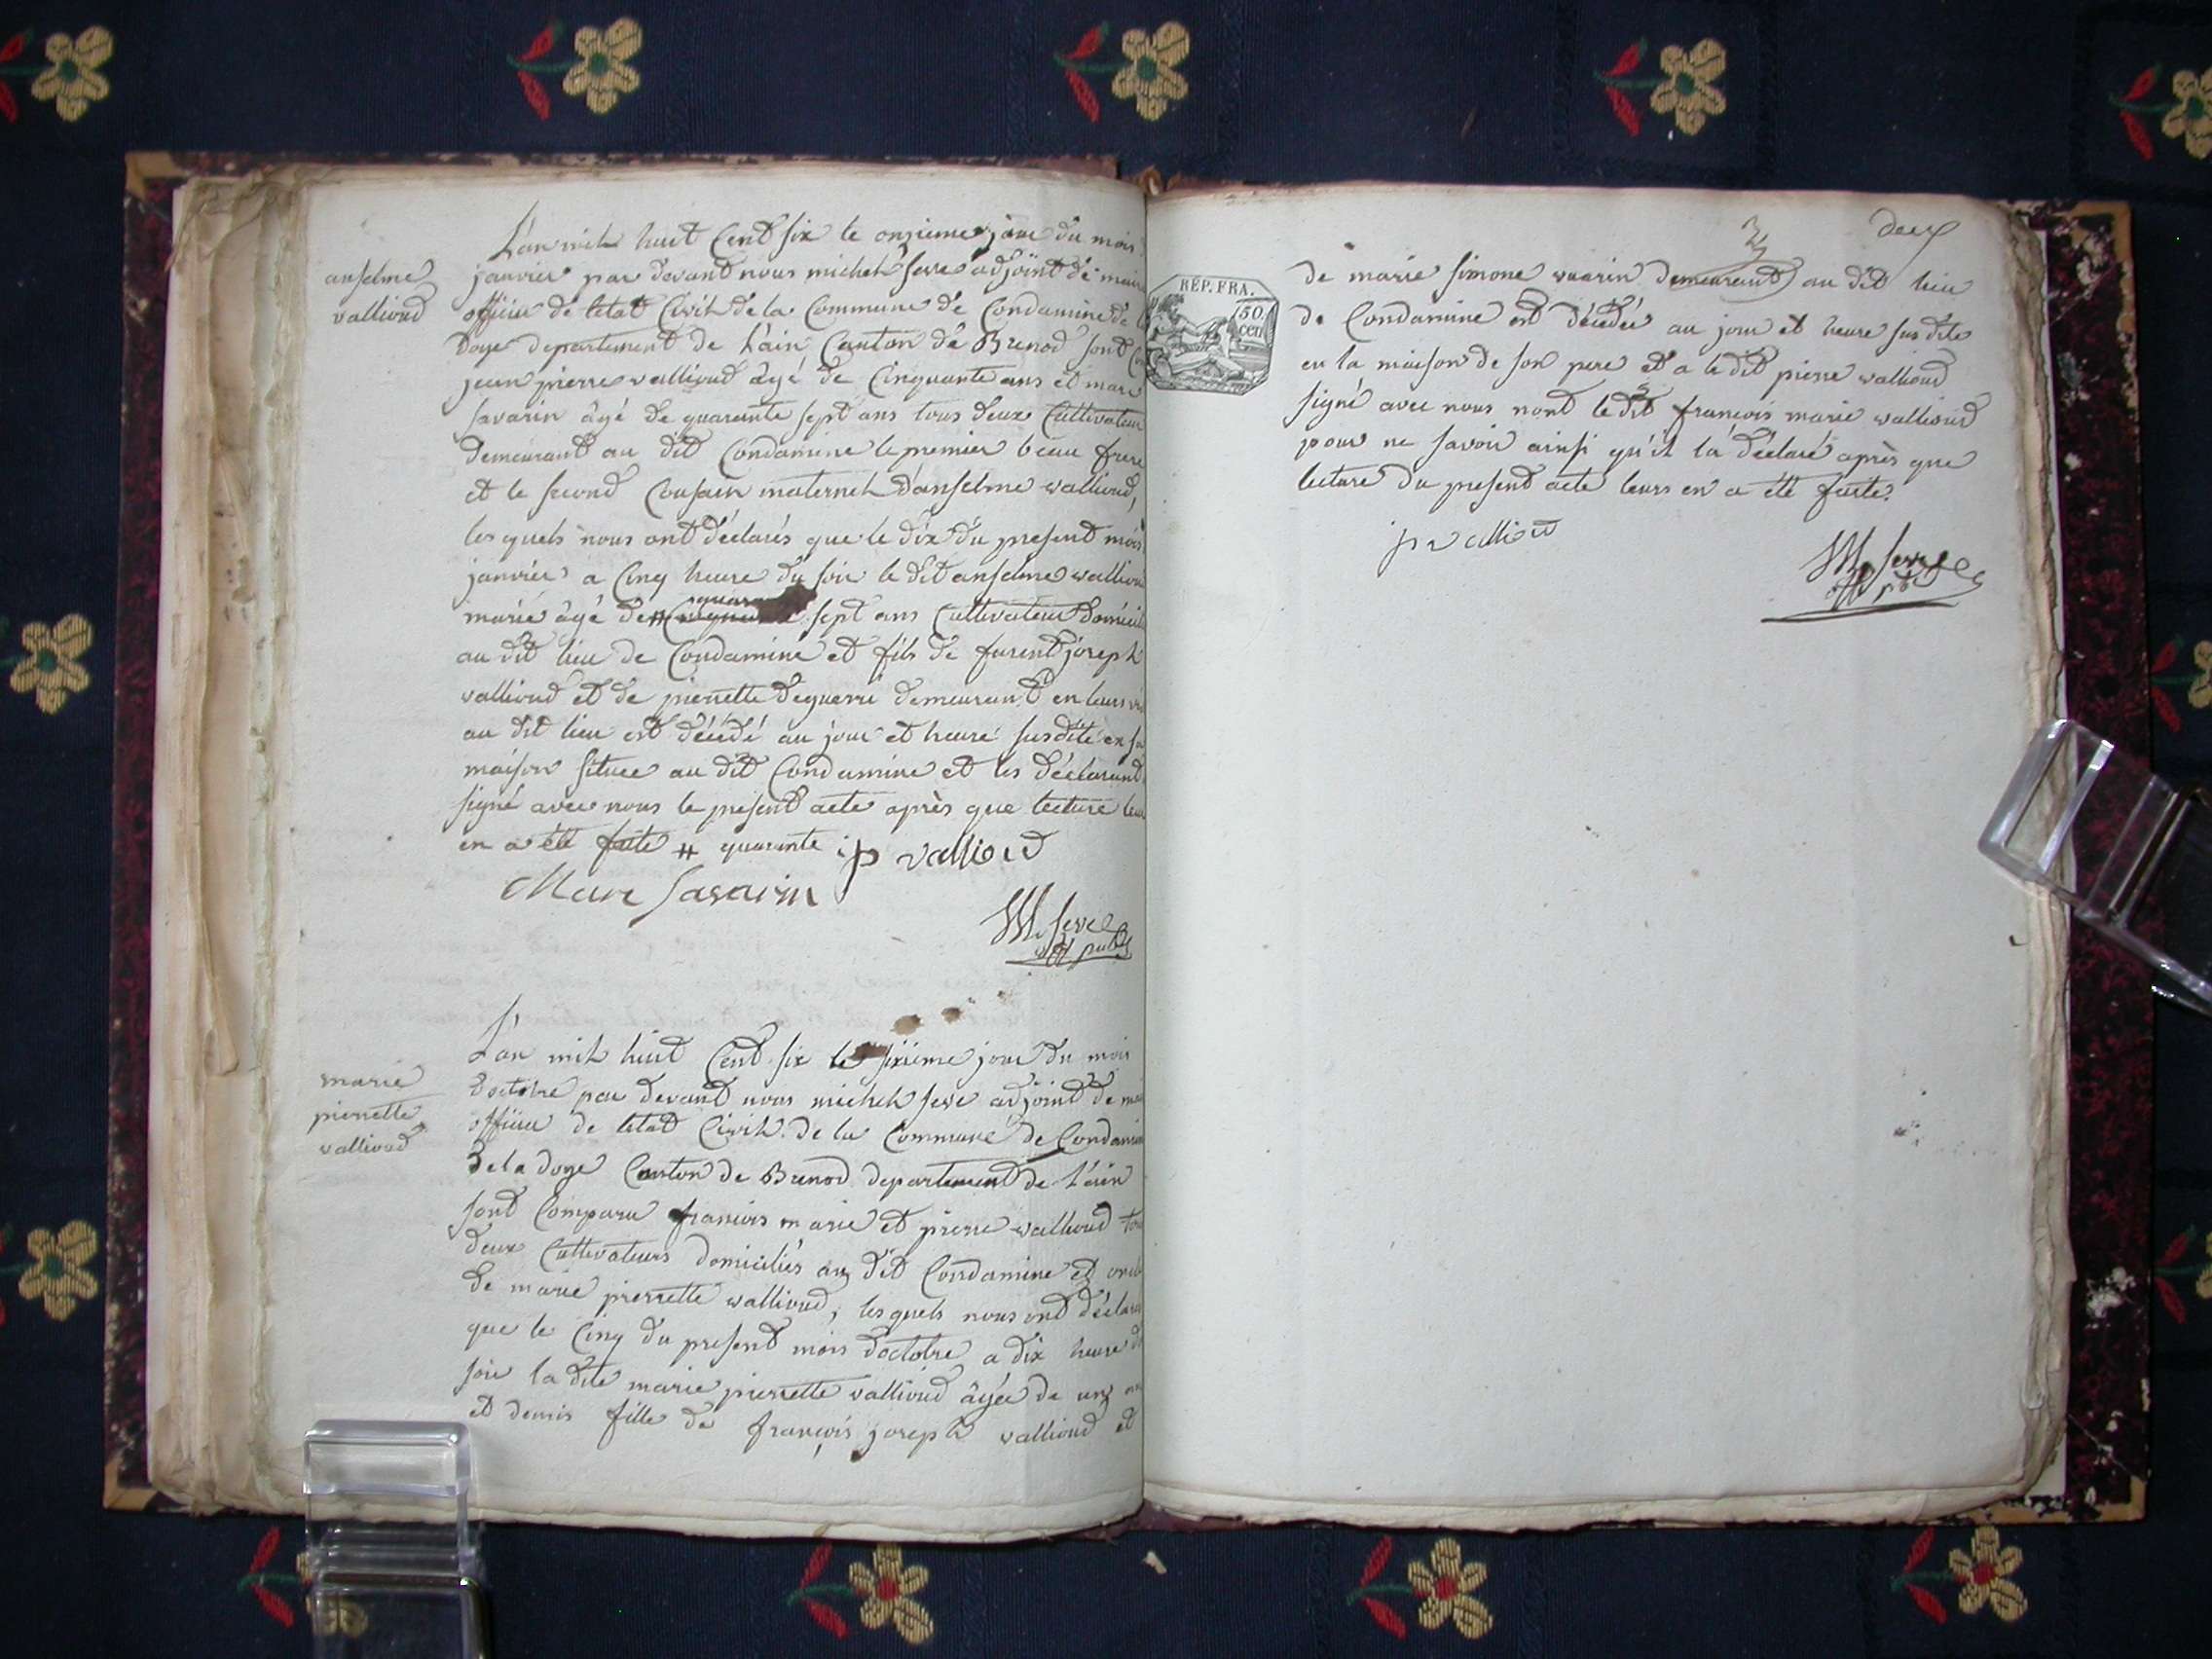 L'an mil huit Cent six le onzieme jour du mois
anselme
vallioud
janvier par devant nous michel serve adjoint de maire
officier de letat Civil de la Commune de Condamine de
Doye departement de l'ain Canton de Brenod sont
jean pierre vallioud âgé de Cinquante ans et marc
savarin âgé de quarante sept ans tous deux Cultivateur
demeurant au dit Condamine le premier beau frere
et le second Cousin maternel d'anselme vallioud,
les quels nous ont déclarés que le dix du present mois
janvier a Cinq heure du soir le dit anselme vallioud
marié âgé de # sept ans Cultivateur domicil
au dit lieu de Condamine et fils de furent joseph
vallioud et de pierrette deguerri demeurant en leurs
au dit lieu est décédé au jour et heure susdite en sa
maison située au dit Condamine et les déclarant
signé avec nous le present acte après que lecture leur
en a été faite # quarante jp valliod
Marc Savarin
M. serve
off pub
L'an mil huit Cent six le sixieme jour du mois
marie
pierrette
vallioud
d'octobre par devant nous michel serve adjoint de
officier de létat Civil de la Commune de Condamin
de la doye Canton de Brenod departement de l'ain
sont Comparu francois marie et pierre vallioud
deux Cultivateurs domiciliés au dit Condamine et
de marie pierrette vallioud, les quels nous ont déclaré
que le Cinq du present mois d'octobre a dix heure
soir la dite marie pierrette vallioud âgée de un an
et demis fille de françois joseph vallioud et
deux
RÉP. FRA.
50
cen
de marie simone demeurant au dit lieu
de Condamine est décédée au jour et heure sus dite
en la maison de son pere et a le dit pierre vallioud
signé avec nous nont le dit francois marie vallioud
pour ne savoir ainsi qu'il la déclaré après que
lecture du present acte leurs en a été faite.
p valliod
M. serve
off pub